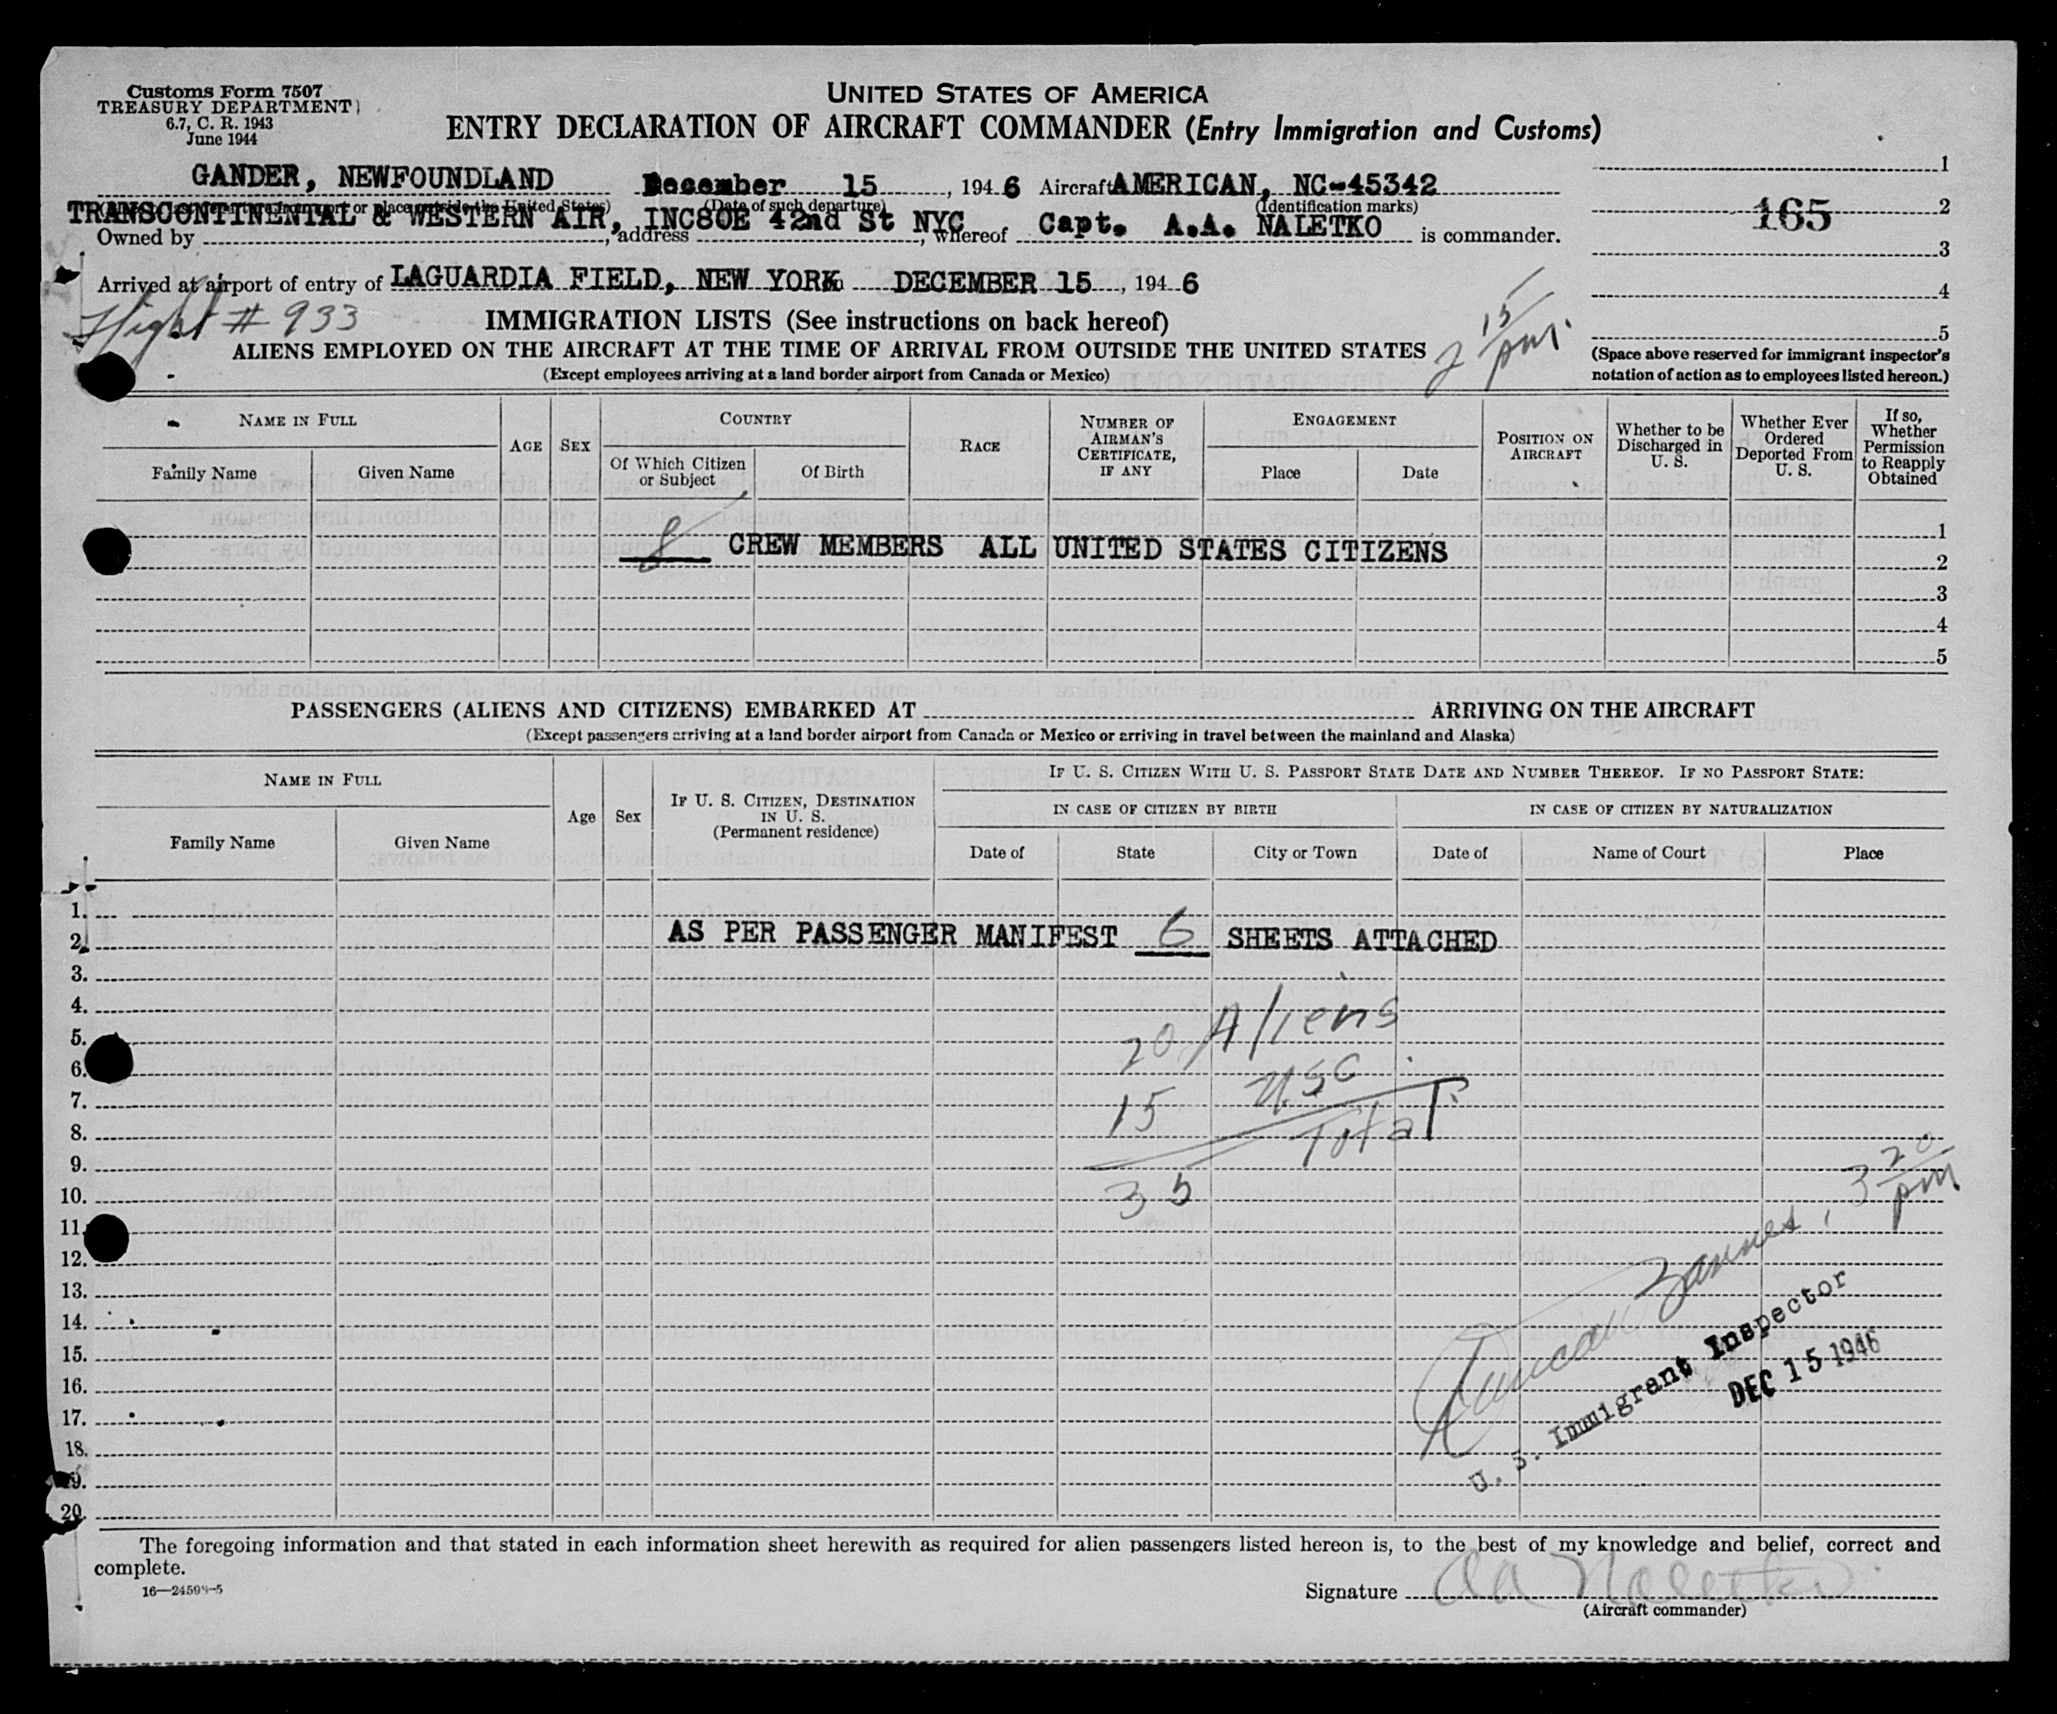 Customs Form 7507
TREASURY DEPARTMENT
6.7, C. R. 1943
June 1944
UNITED STATES OF AMERICA
ENTRY DECLARATION OF AIRCRAFT COMMANDER (Entry Immigration and Customs)
GANDER, NEWFOUNDLAND December 15, 1946 Aircraft AMERICAN, NC-45342
(Date of such departure) (Identification marks)
TRANSCONTINENTAL & WESTERN AIR, INC 80E 42nd St NYC Capt. A.A. NALETKO
Owned by , address , whereof is commander.
Arrived at airport of entry of LAGUARDIA FIELD, NEW YORK DECEMBER 15, 1946
165
1
2
3
4
5
(Space above reserved for immigrant inspector's
notation of action as to employees listed hereon.)
Flight # 933
2 15 pm.
IMMIGRATION LISTS (See instructions on back hereof)
ALIENS EMPLOYED ON THE AIRCRAFT AT THE TIME OF ARRIVAL FROM OUTSIDE THE UNITED STATES
(Except employees arriving at a land border airport from Canada or Mexico)
NAME IN FULL
Family Name Given Name
AGE SEX
COUNTRY
Of Which Citizen or Subject Of Birth
RACE
NUMBER OF AIRMAN'S CERTIFICATE, IF ANY
ENGAGEMENT
Place Date
POSITION ON AIRCRAFT
Whether to be Discharged in U. S.
Whether Ever Ordered Deported From U. S.
If so, Whether Permission to Reapply Obtained
1
8 CREW MEMBERS ALL UNITED STATES CITIZENS
2
3
4
5
PASSENGERS (ALIENS AND CITIZENS) EMBARKED AT ARRIVING ON THE AIRCRAFT
(Except passengers arriving at a land border airport from Canada or Mexico or arriving in travel between the mainland and Alaska)
NAME IN FULL
Family Name Given Name
Age Sex
IF U. S. CITIZEN, DESTINATION IN U. S.
(Permanent residence)
IF U. S. CITIZEN WITH U. S. PASSPORT STATE DATE AND NUMBER THEREOF. IF NO PASSPORT STATE:
IN CASE OF CITIZEN BY BIRTH IN CASE OF CITIZEN BY NATURALIZATION
Date of State City or Town Date of Name of Court Place
1.
2. AS PER PASSENGER MANIFEST 6 SHEETS ATTACHED
3.
4.
5. 20 Aliens
6.
7. 15 USC
8. Total
9.
10. 35 3 20 pm
11.
12.
13.
14.
15.
16.
17.
18.
19.
20.
Duncan
U. S. Immigrant Inspector
DEC 15 1946
The foregoing information and that stated in each information sheet herewith as required for alien passengers listed hereon is, to the best of my knowledge and belief, correct and
complete.
Signature AA Naletko
(Aircraft commander)